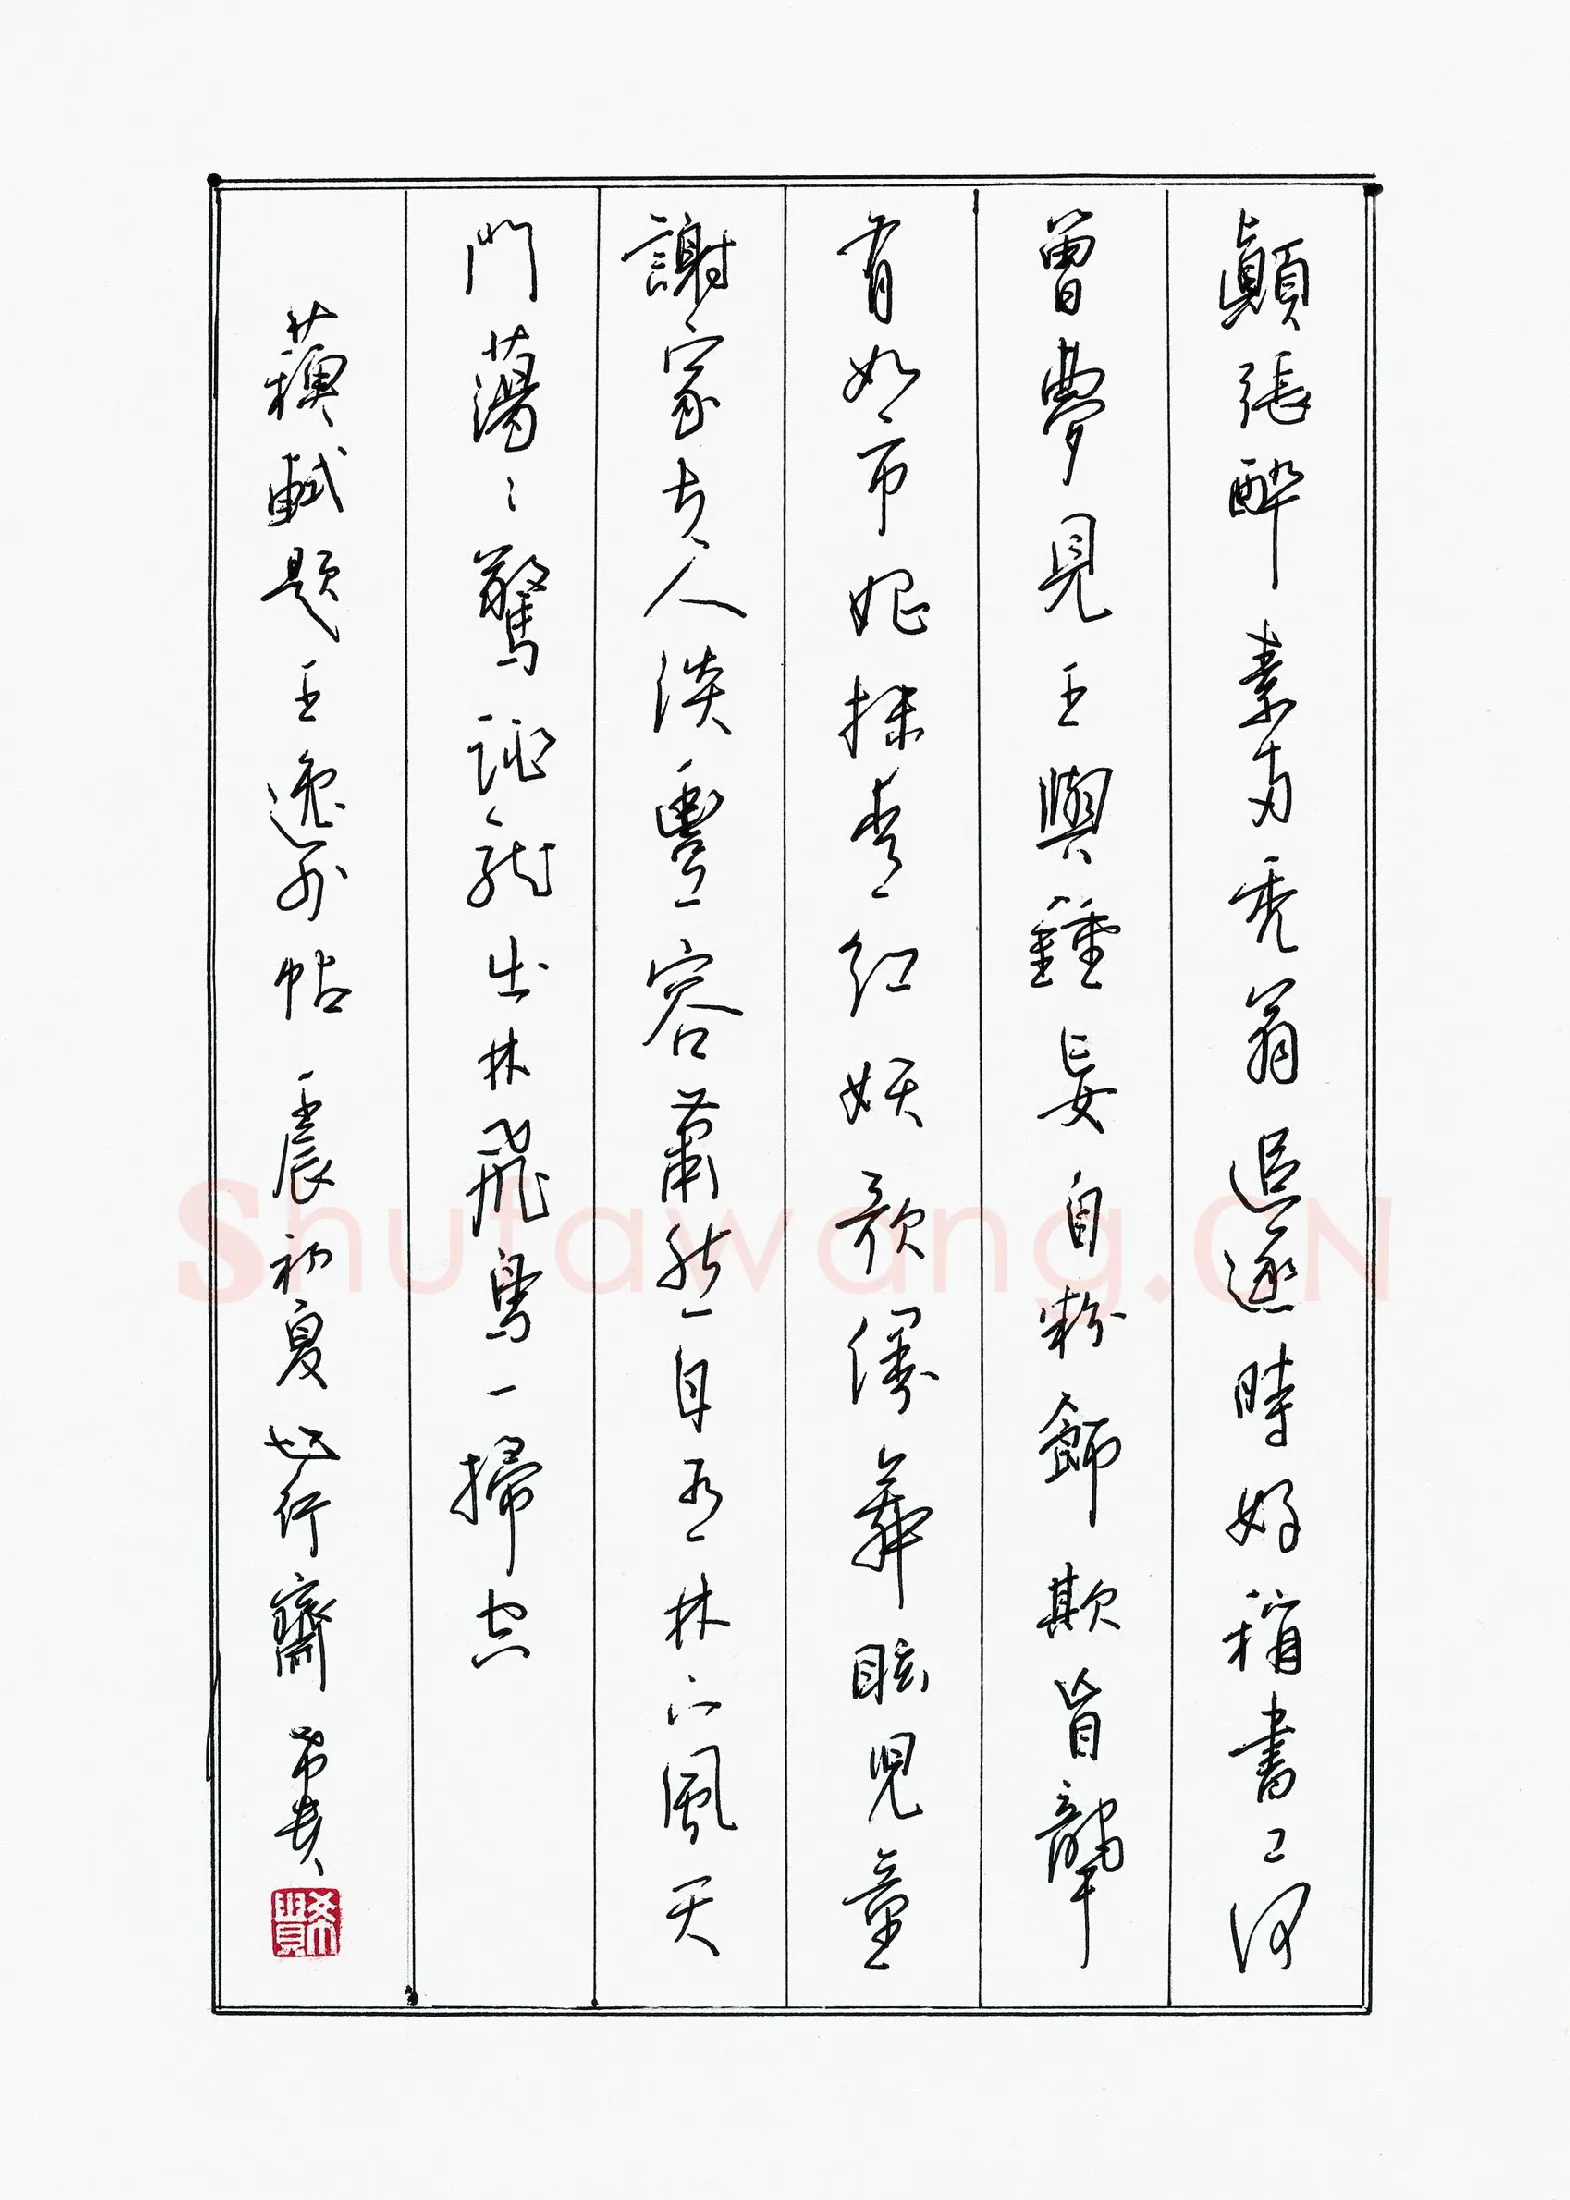 顛張醉素兩禿翁追逐時好稱書工何
曾夢見王與鍾妄自粉飾欺盲聾
有如市娼抹青紅妖歌嫚舞眩兒童
謝家夫人淡豐容蕭然自有林下風天
門蕩〻驚跳龍出林飛鳥一掃空
蘇軾題王逸少帖 壬辰初夏也行齋 希賢
希賢
Shufawang.CN